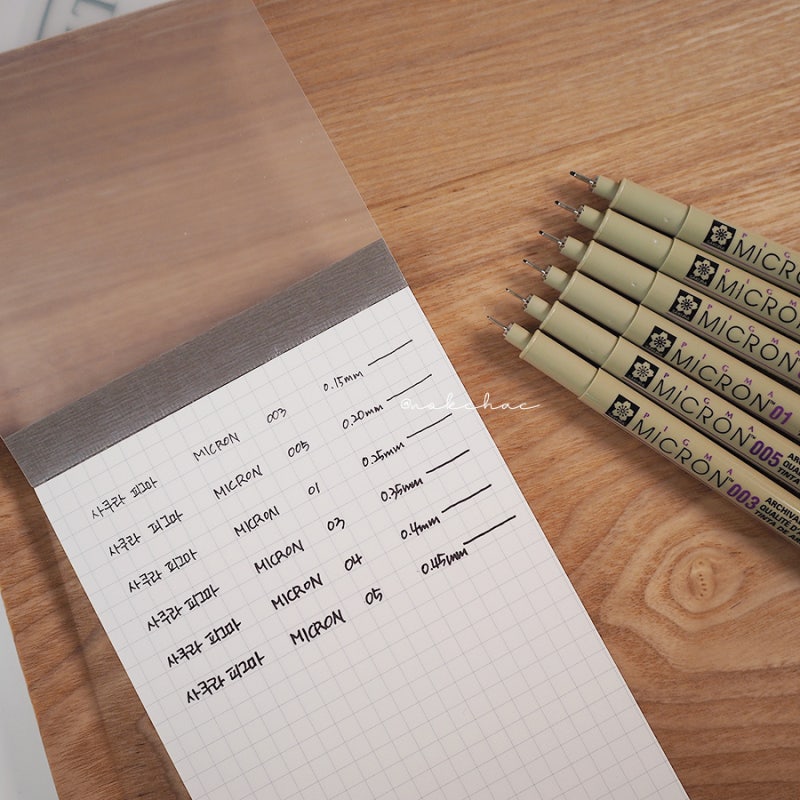 사쿠라 피그마 MICRON 003 0.15mm
사쿠라 피그마 MICRON 005 0.20mm
사쿠라 피그마 MICRON 01 0.25mm
사쿠라 피그마 MICRON 03 0.35mm
사쿠라 피그마 MICRON 04 0.4mm
사쿠라 피그마 MICRON 05 0.45mm
@nokchac
PIGMA
MICRON
PIGMA
MICRON
PIGMA
MICRON
PIGMA
MICRON™ 01
PIGMA
MICRON™ 005
PIGMA
MICRON™ 003
ARCHIVAL
QUALITÉ D'
TINTA DE AR